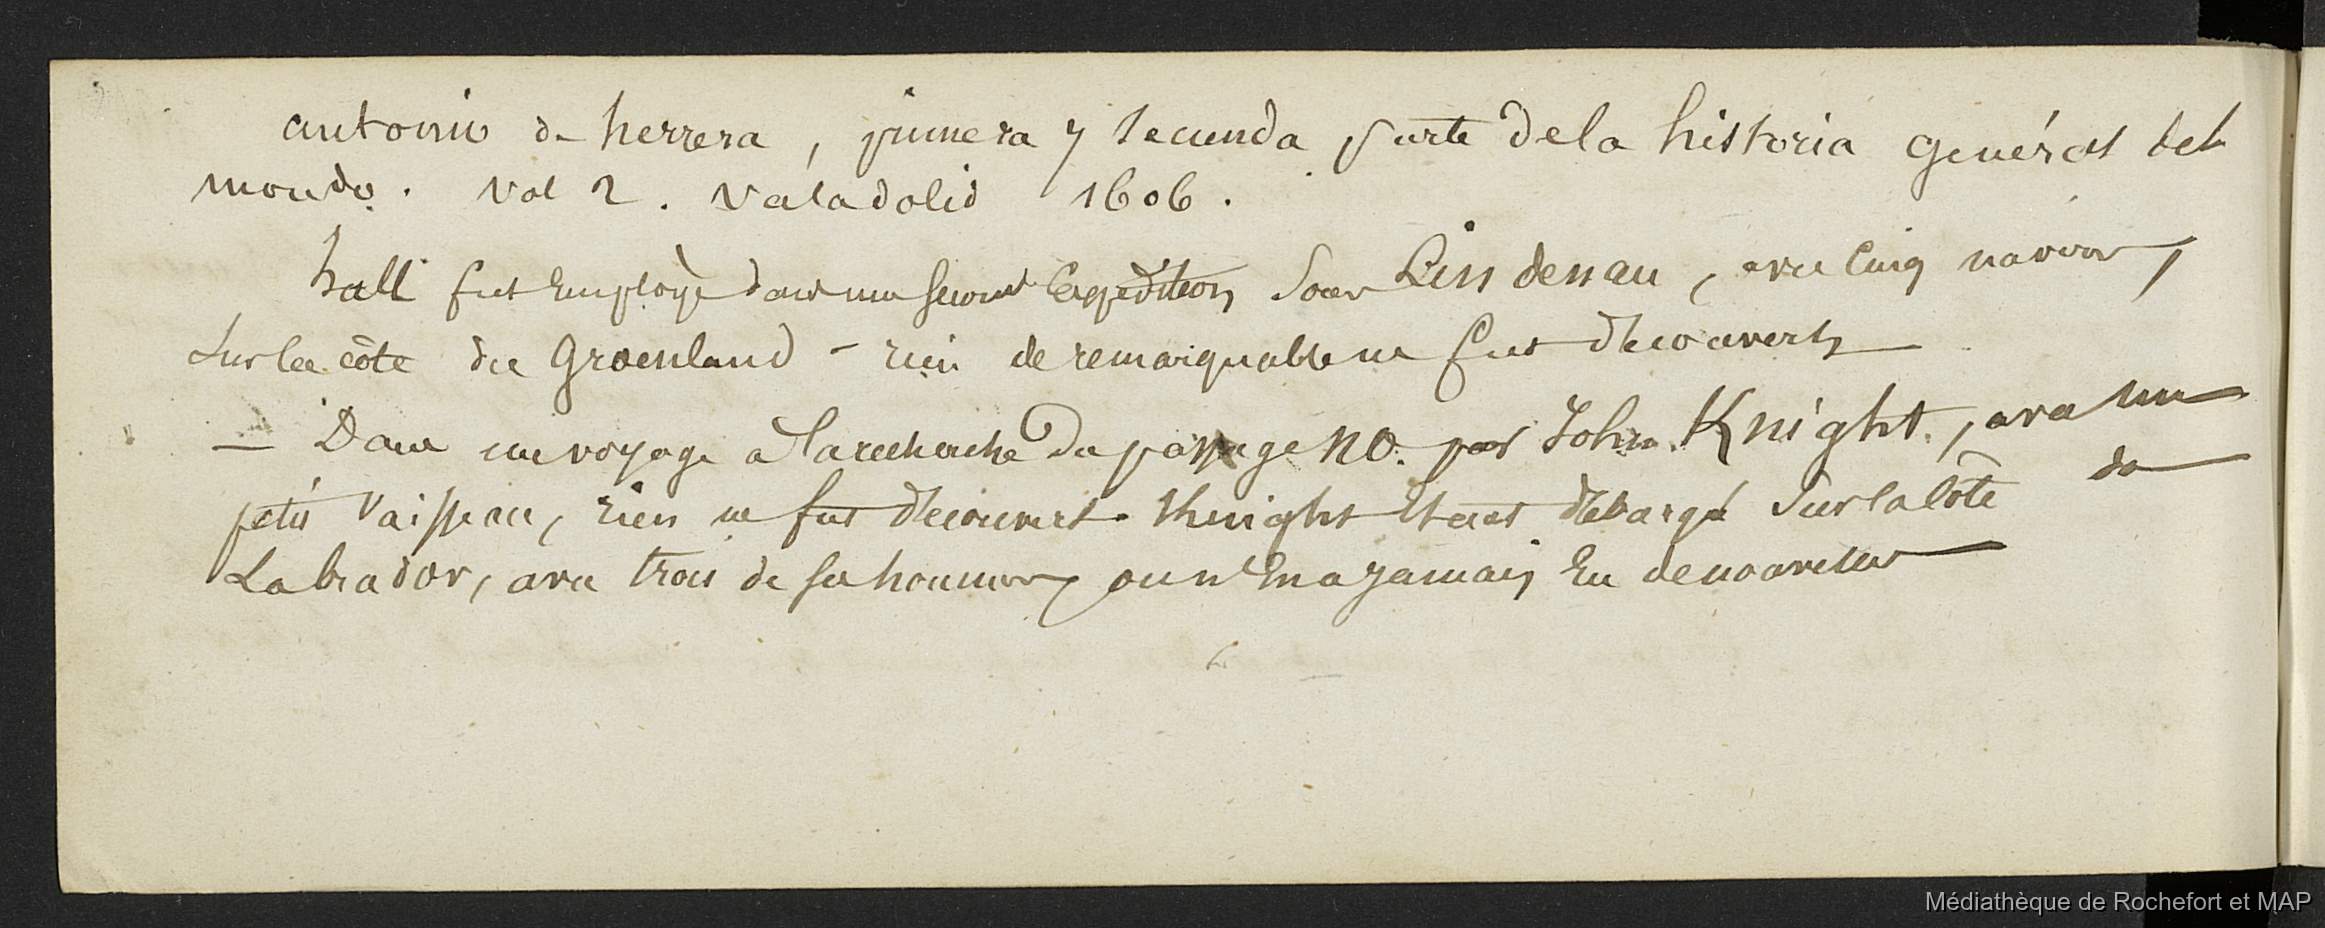 antonio de herrera, primera y secunda parte dela historia général del
mondo. vol 2. valadolid 1606.
hall fut Employé dans une seconde Expédition Sous Lindenau, avec Cinq navires,
Sur la côte du Groenland - rien de remarquable ne fut découvert
— Dans un voyage à la recherche du passage NO. par John Knight, avec un
petit Vaisseau, rien ne fut découvert. Knight Etant débarqué Sur la Côte du
Labrador, avec trois de ses hommes on n'En a jamais Eu de nouvelles
Médiathèque de Rochefort et MAP